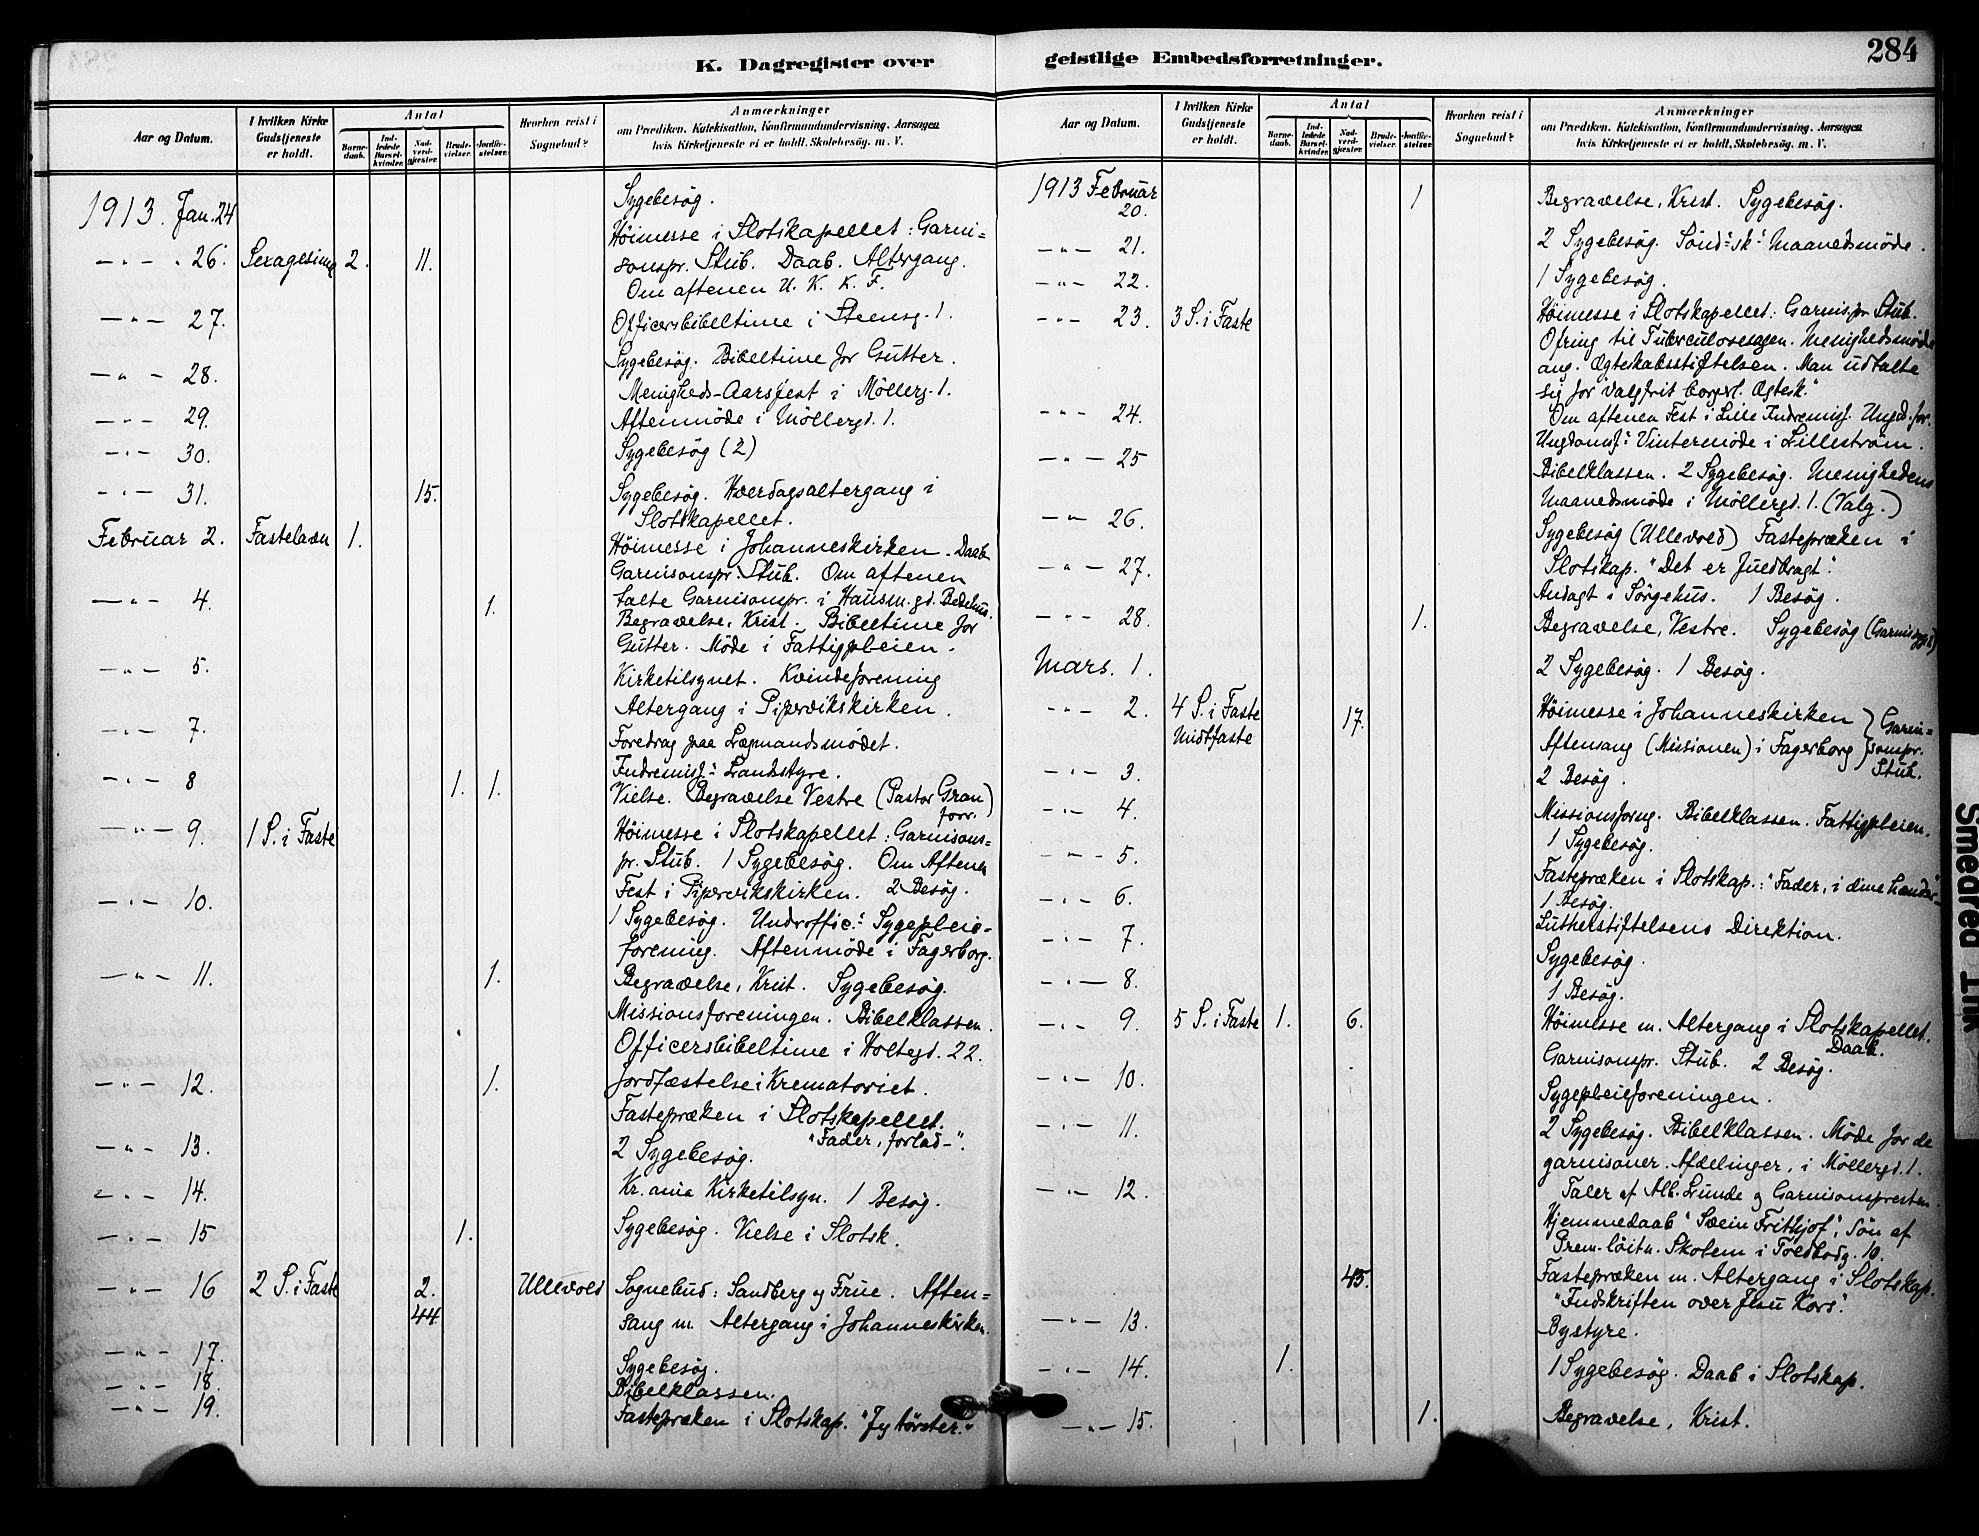 284
K. Dagregister over geistlige Embedsforretninger.
Aar og Datum.
I hvilken Kirke Gudstjeneste er holdt.
Antal
Barne-daab.
Ind-ledede Barsel-kvinder.
Nad-verd-gjester.
Brude-vielser.
Jordfæ-stelser.
Hvorhen reist i Sognebud?
Anmærkninger
om Prædiken, Katekisation, Konfirmandundervisning, Aarsagen
hvis Kirketjeneste ei er holdt, Skolebesøg, m. V.
1913. Jan. 24 Sygebesøg.
Høimesse i Slotskapellet: Garni=
— " — 26. Sexagesima 2. 11. sonspr. Stub. Daab. Altergang.
Om aftenen U. K. K. F.
— " — 27. Officersbibeltime i Steensg. 1.
Sygebesøg. Bibeltime for Gutter.
— " — 28. Menigheds-Aarsfest i Möllerg. 1.
— " — 29. Aftenmøde i Möllergd. 1.
— " — 30. Sygebesøg (2)
— " — 31. 15. Sygebesøg. Hverdagsaltergang i
Slotskapellet.
Februar 2. Fastelavn 1. Høimesse i Johanneskirken. Daab
Garnisonspr. Stub. Om aftenen
talte Garnisonspr. i Hausm.gd. Bedehus.
— " — 4. 1. Begravelse, Krist. Bibeltime for
Gutter. Møde i Fattigpleien.
— " — 5. Kirketilsynet. Kvindeforening
Altergang i Pipervikskirken.
— " — 7. Foredrag paa Lægmandsmødet.
Indremisj: Landsstyre.
— " — 8 1. 1. Vielse. Begravelse Vestre (Pastor Gran)
forr.
— " — 9. 1 S. i Faste Høimesse i Slotskapellet: Garnisons=
pr. Stub. 1 Sygebesøg. Om Aftenen
Fest i Pipervikskirken. 2 Besøg.
— " — 10. 1 Sygebesøg. Underoffic: Sygepleie-
forening. Aftenmøde i Fagerborg.
— " — 11. 1. Begravelse, Krist. Sygebesøg.
Missionsforeningen. Bibelklassen.
Officersbibeltime i Holtegd. 22.
— " — 12. 1. Jordfæstelse i Krematoriet.
Fastepræken i Slotskapellet.
"Fader, forlad—".
— " — 13. 2 Sygebesøg.
— " — 14. Kr.ania Kirketilsyn. 1 Besøg.
— " — 15 1. Sygebesøg. Vielse i Slotsk.
— " — 16 2 S. i Faste 2. Ullevold Sognebud: Sandberg og Frue. Aften=
44 sang m. Altergang i Johanneskirken.
— " — 17. Sygebesøg.
— " — 18. Bibelklassen.
— " — 19. Fastepræken i Slotskap. "Jeg tørster."
Aar og Datum.
I hvilken Kirke Gudstjeneste er holdt.
Antal
Barne-daab.
Ind-ledede Barsel-kvinder.
Nad-verd-gjester.
Brude-vielser.
Jordfæ-stelser.
Hvorhen reist i Sognebud?
Anmærkninger
om Prædiken, Katekisation, Konfirmandundervisning, Aarsagen
hvis Kirketjeneste ei er holdt, Skolebesøg, m. V.
1913 Februar
20. 1 Begravelse, Krist. Sygebesøg.
— " — 21. 2 Sygebesøg. Sønd: sk: Maanedsmøde.
— " — 22. 1 Sygebesøg.
— " — 23. 3 S. i Faste Høimesse i Slotskapellet: Garnis.pr. Stub.
Ofring til Tuberculosesagen. Menighedsmøde
ang. Ægteskabsstiftelsen. Man udtalte
sig for "valgfrit borgerl. Ægtesk."
— " — 24. Om aftenen Fest i Lille Indremisj. Ungd.for.
Ungdomsf: Vintermøde i Lillestrøm.
— " — 25 Bibelklassen. 2 Sygebesøg. Menighedens
Maanedsmøde i Möllergd. 1. (Valg.)
— " — 26. Sygebesøg (Ullevold) Fastepræken i
Slotskap. "Det er fuldbragt".
— " — 27. Andagt i Sørgehus. 1 Besøg.
— " — 28. 1. Begravelse, Vestre. Sygebesøg
Mars. 1. 2 Sygebesøg. 1 Besøg.
— " — 2. 4 S. i Faste 17. Høimesse i Johanneskirken } Garni=
Midtfaste Aftensang (Missionen) i Fagerborg } sonspr.
Stub.
— " — 3. 2 Besøg.
— " — 4. Missionsforng. Bibelklassen. Fattigpleien.
1 Sygebesøg.
— " — 5. Fastepræken i Slotskap.: "Fader, i dine hænder—"
— " — 6. 1 Besøg.
— " — 7. Lutherstiftelsens Direktion.
Sygebesøg.
— " — 8. 1 Besøg.
— " — 9. 5 S. i Faste 1. 6. Høimesse m. Altergang i Slotskapellet.
Daab.
Garnisonspr. Stub. 2 Besøg.
— " — 10. Sygepleieforeningen.
— " — 11. 2 Sygebesøg. Bibelklassen. Møde for de
garnisoner. Afdelinger, i Möllergd. 1.
— " — 12. Taler af Alb. Lunde og Garnisonspresten.
Hjemmedaab "Svein Frithjof", Søn af
Prem.løitn. Skolem i Toldbodg. 10.
45. Fastepræken m. Altergang i Slotskap.
"Indskriften over Jesu Kors".
— " — 13. Bystyre.
— " — 14. 1. 1 Sygebesøg. Daab i Slotskap.
— " — 15. 1. Begravelse, Krist.
Smeared Ink